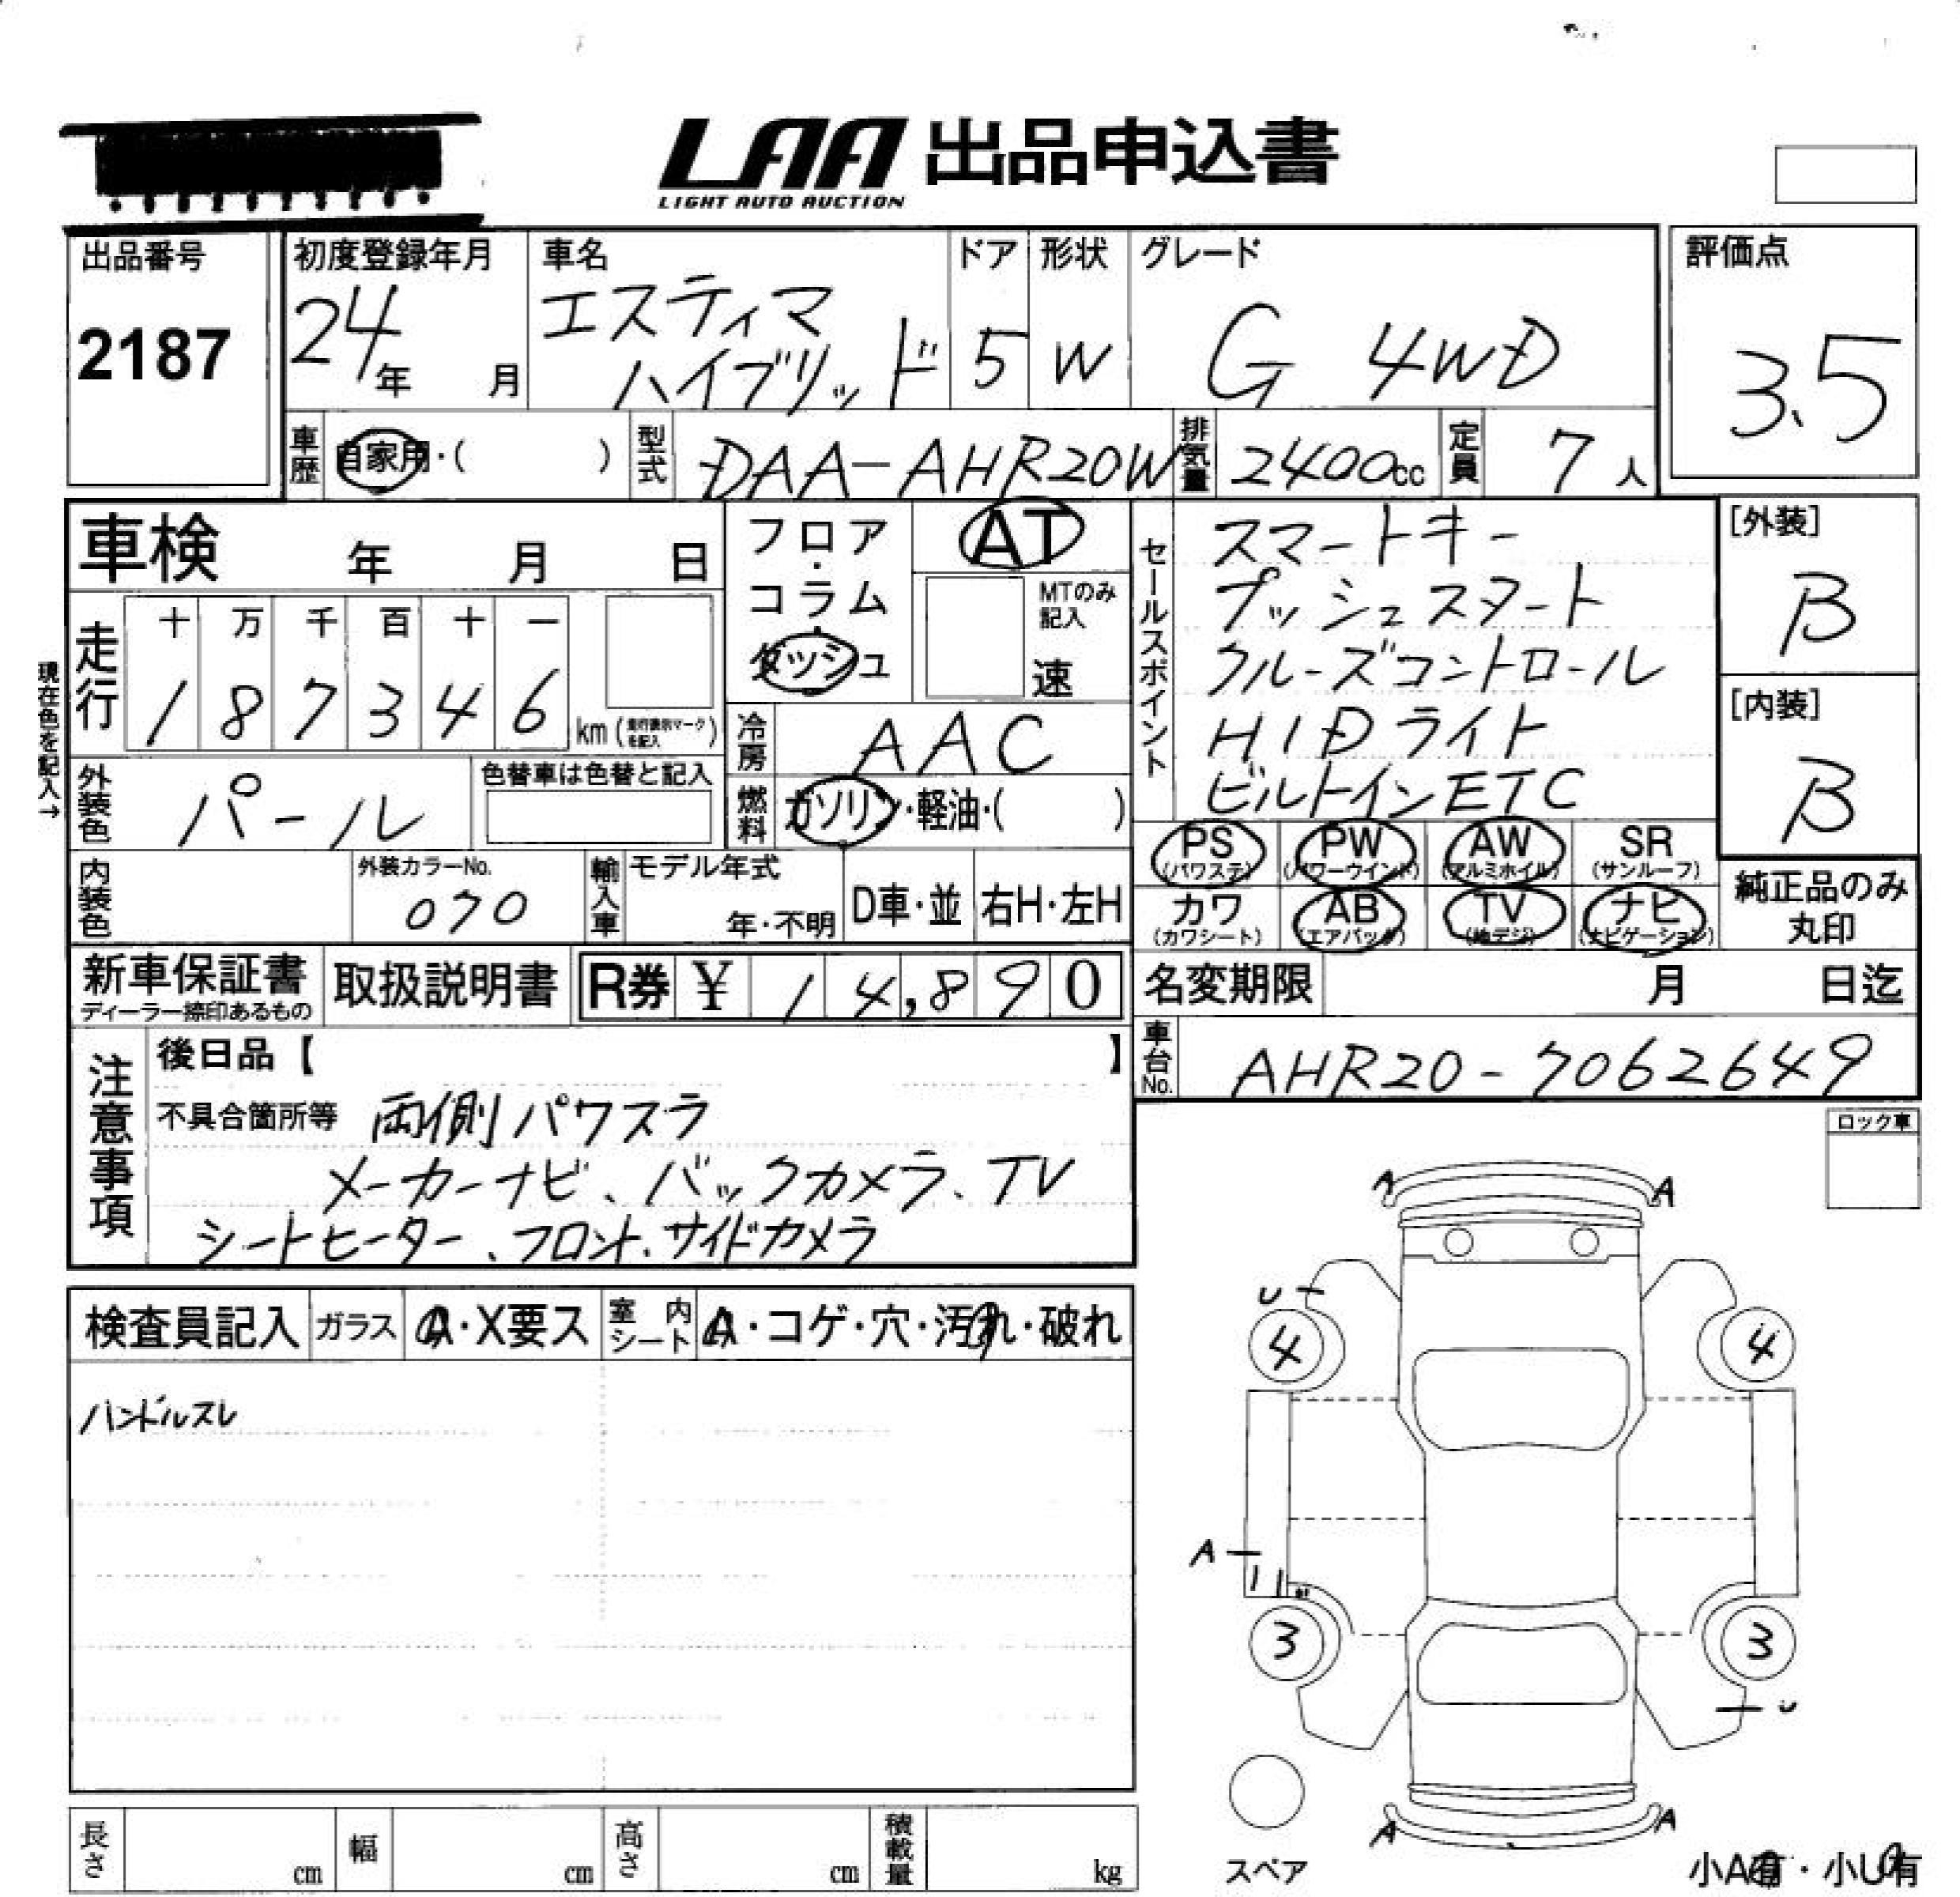 LAA 出品申込書
LIGHT AUTO AUCTION
出品番号
2187
初度登録年月
24年 月
車名
エスティマ
ハイブリッド
ドア
5
形状
W
グレード
G 4WD
評価点
3.5
車歴 自家用・( )
型式 DAA-AHR20W
排気量 2400cc
定員 7人
車検 年 月 日
フロア・
コラム・
ダッシュ
AT
MTのみ
記入
速
現在色を記入→
走行
十 万 千 百 十 一
1 8 7 3 4 6 km (走行表示マークを記入)
冷房 AAC
燃料 ガソリン・軽油・( )
外装色 パール
色替車は色替と記入
内装色
外装カラーNo.
070
輸入車
モデル年式
年・不明
D車・並
右H・左H
セールスポイント
スマートキー
プッシュスタート
クルーズコントロール
HIDライト
ビルトインETC
[外装]
B
[内装]
B
PS (パワステ)
PW (パワーウインド)
AW (アルミホイル)
SR (サンルーフ)
カワ (カワシート)
AB (エアバック)
TV (地デジ)
ナビ (ナビゲーション)
純正品のみ
丸印
新車保証書
ディーラー捺印あるもの
取扱説明書
R券 ¥ 14,890
名変期限 月 日迄
車台No. AHR20-7062649
注意事項
後日品【 】
不具合箇所等 両側パワスラ
メーカーナビ、バックカメラ、TV
シートヒーター、フロント、サイドカメラ
ロック車
検査員記入
ガラス A・X要ス
室内シート A・コゲ・穴・汚れ・破れ
ハンドルスレ
A A
U
4 4
A
3 3
U
A A
スペア
小A有・小U有
長さ cm
幅 cm
高さ cm
積載量 kg